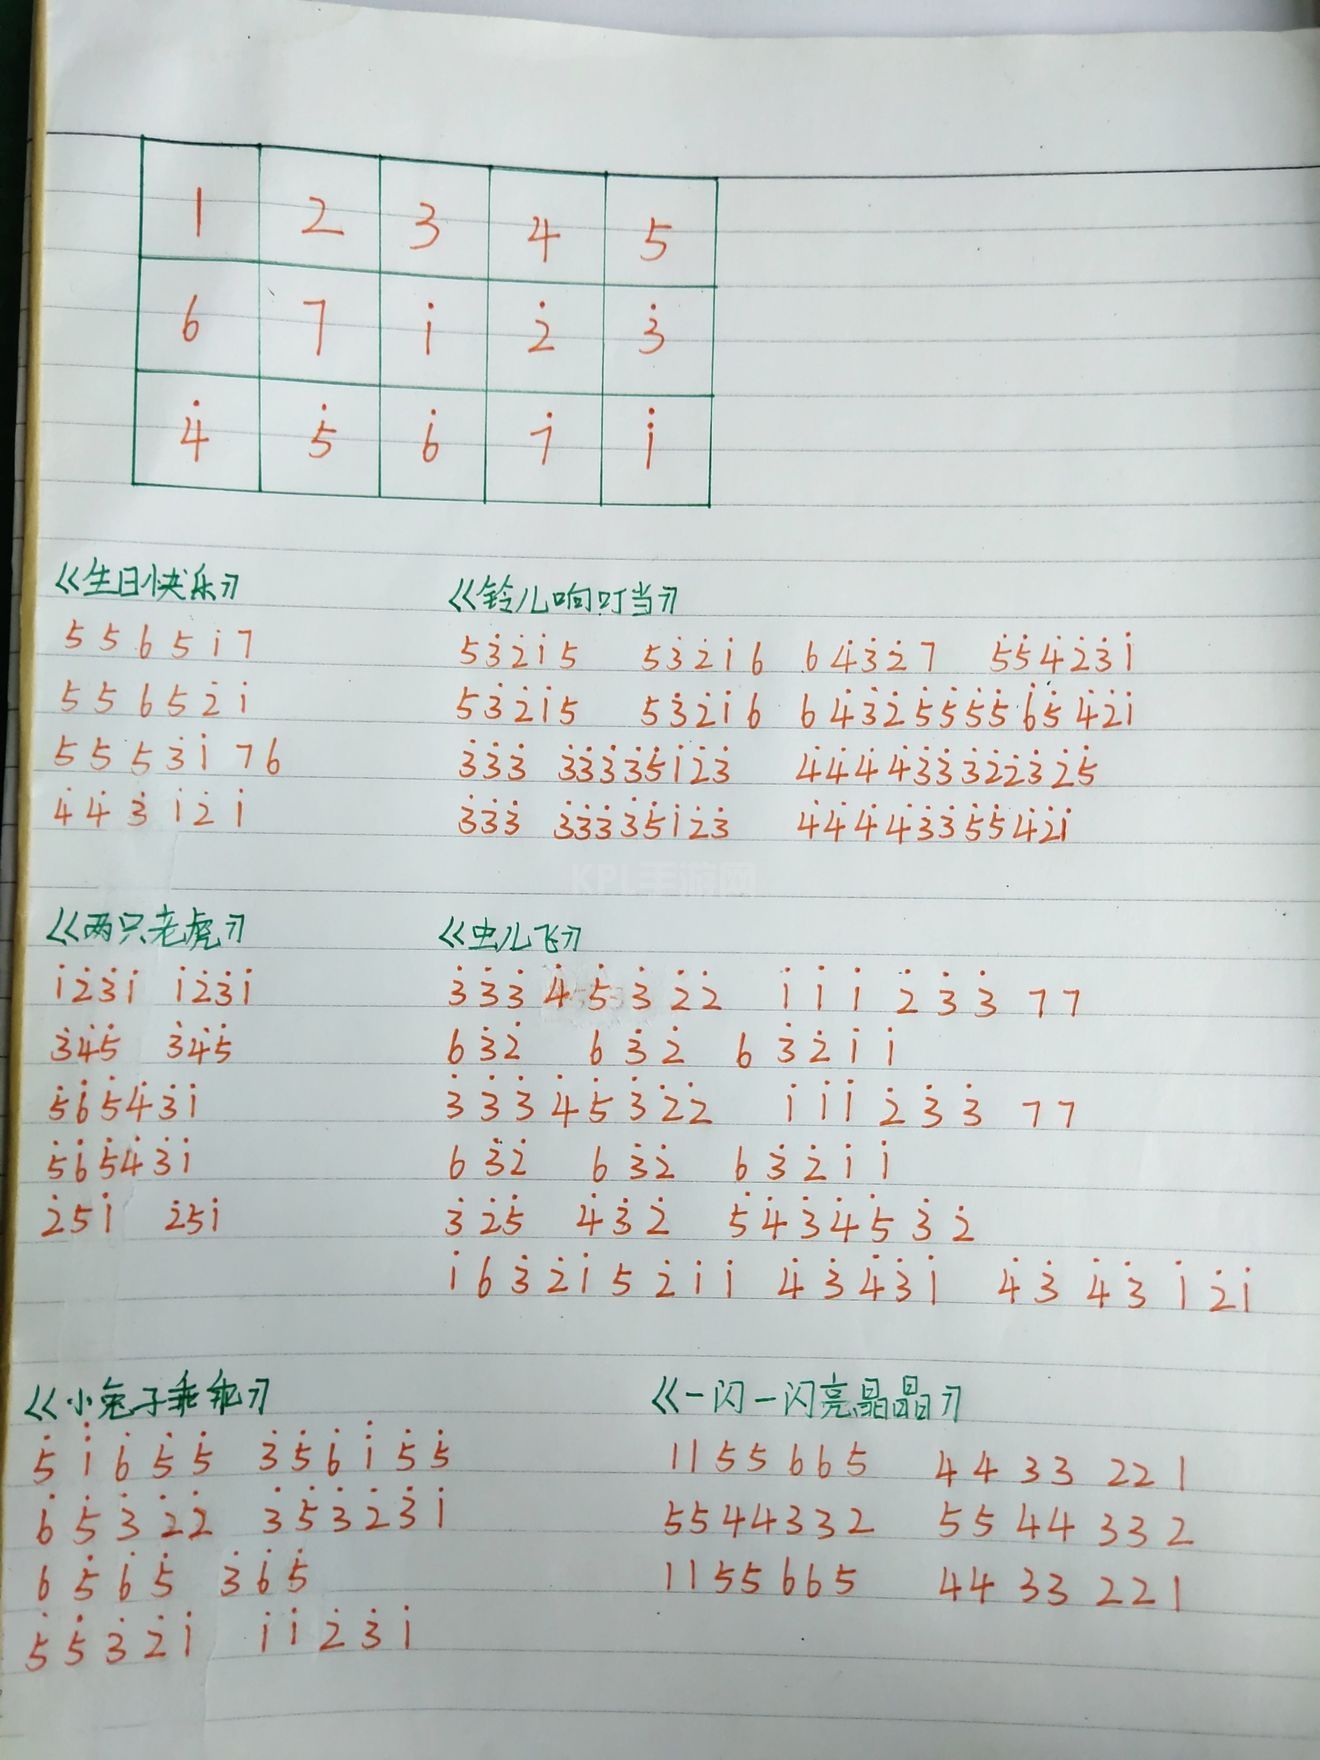 1 2 3 4 5
6 7 1̇ 2̇ 3̇
4̇ 5̇ 6̇ 7̇ 1̈
《生日快乐》
5 5 6 5 1̇ 7
5 5 6 5 2̇ 1̇
5 5 5̇ 3̇ 1̇ 7 6
4̇ 4̇ 3̇ 1̇ 2̇ 1̇
《铃儿响叮当》
5 3̇ 2̇ 1̇ 5 5 3̇ 2̇ 1̇ 6 6 4̇ 3̇ 2̇ 7 5̇ 5̇ 4̇ 2̇ 3̇ 1̇
5 3̇ 2̇ 1̇ 5 5 3̇ 2̇ 1̇ 6 6 4̇ 3̇ 2̇ 5̇ 5̇ 5̇ 5̇ 6̇ 5̇ 4̇ 2̇ 1̇
3̇ 3̇ 3̇ 3̇ 3̇ 3̇ 3̇ 5̇ 1̇ 2̇ 3̇ 4̇ 4̇ 4̇ 4̇ 3̇ 3̇ 3̇ 2̇ 2̇ 3̇ 2̇ 5̇
3̇ 3̇ 3̇ 3̇ 3̇ 3̇ 3̇ 5̇ 1̇ 2̇ 3̇ 4̇ 4̇ 4̇ 4̇ 3̇ 3̇ 5̇ 5̇ 4̇ 2̇ 1̇
KPL手游网
《两只老虎》
1̇ 2̇ 3̇ 1̇ 1̇ 2̇ 3̇ 1̇
3̇ 4̇ 5̇ 3̇ 4̇ 5̇
5̇ 6̇ 5̇ 4̇ 3̇ 1̇
5̇ 6̇ 5̇ 4̇ 3̇ 1̇
2̇ 5 1̇ 2̇ 5 1̇
《虫儿飞》
3̇ 3̇ 3̇ 4̇ 5̇ 3̇ 2̇ 2̇ 1̇ 1̇ 1̇ 2̇ 3̇ 3̇ 7 7
6 3̇ 2̇ 6 3̇ 2̇ 6 3̇ 2̇ 1̇ 1̇
3̇ 3̇ 3̇ 4̇ 5̇ 3̇ 2̇ 2̇ 1̇ 1̇ 1̇ 2̇ 3̇ 3̇ 7 7
6 3̇ 2̇ 6 3̇ 2̇ 6 3̇ 2̇ 1̇ 1̇
3̇ 2̇ 5̇ 4̇ 3̇ 2̇ 5̇ 4̇ 3̇ 4̇ 5̇ 3̇ 2̇
1̇ 6 3̇ 2̇ 1̇ 5 2̇ 1̇ 1̇ 4̇ 3̇ 4̇ 3̇ 1̇ 4̇ 3̇ 4̇ 3̇ 1̇ 2̇ 1̇
《小兔子乖乖》
5̇ 1̈ 6̇ 5̇ 5̇ 3̇ 5̇ 6̇ 1̈ 5̇ 5̇
6̇ 5̇ 3̇ 2̇ 2̇ 3̇ 5̇ 3̇ 2̇ 3̇ 1̇
6 5̇ 6̇ 5̇ 3̇ 6̇ 5̇
5̇ 5̇ 3̇ 2̇ 1̇ 1̇ 1̇ 2̇ 3̇ 1̇
《一闪一闪亮晶晶》
1 1 5 5 6 6 5 4 4 3 3 2 2 1
5 5 4 4 3 3 2 5 5 4 4 3 3 2
1 1 5 5 6 6 5 4 4 3 3 2 2 1